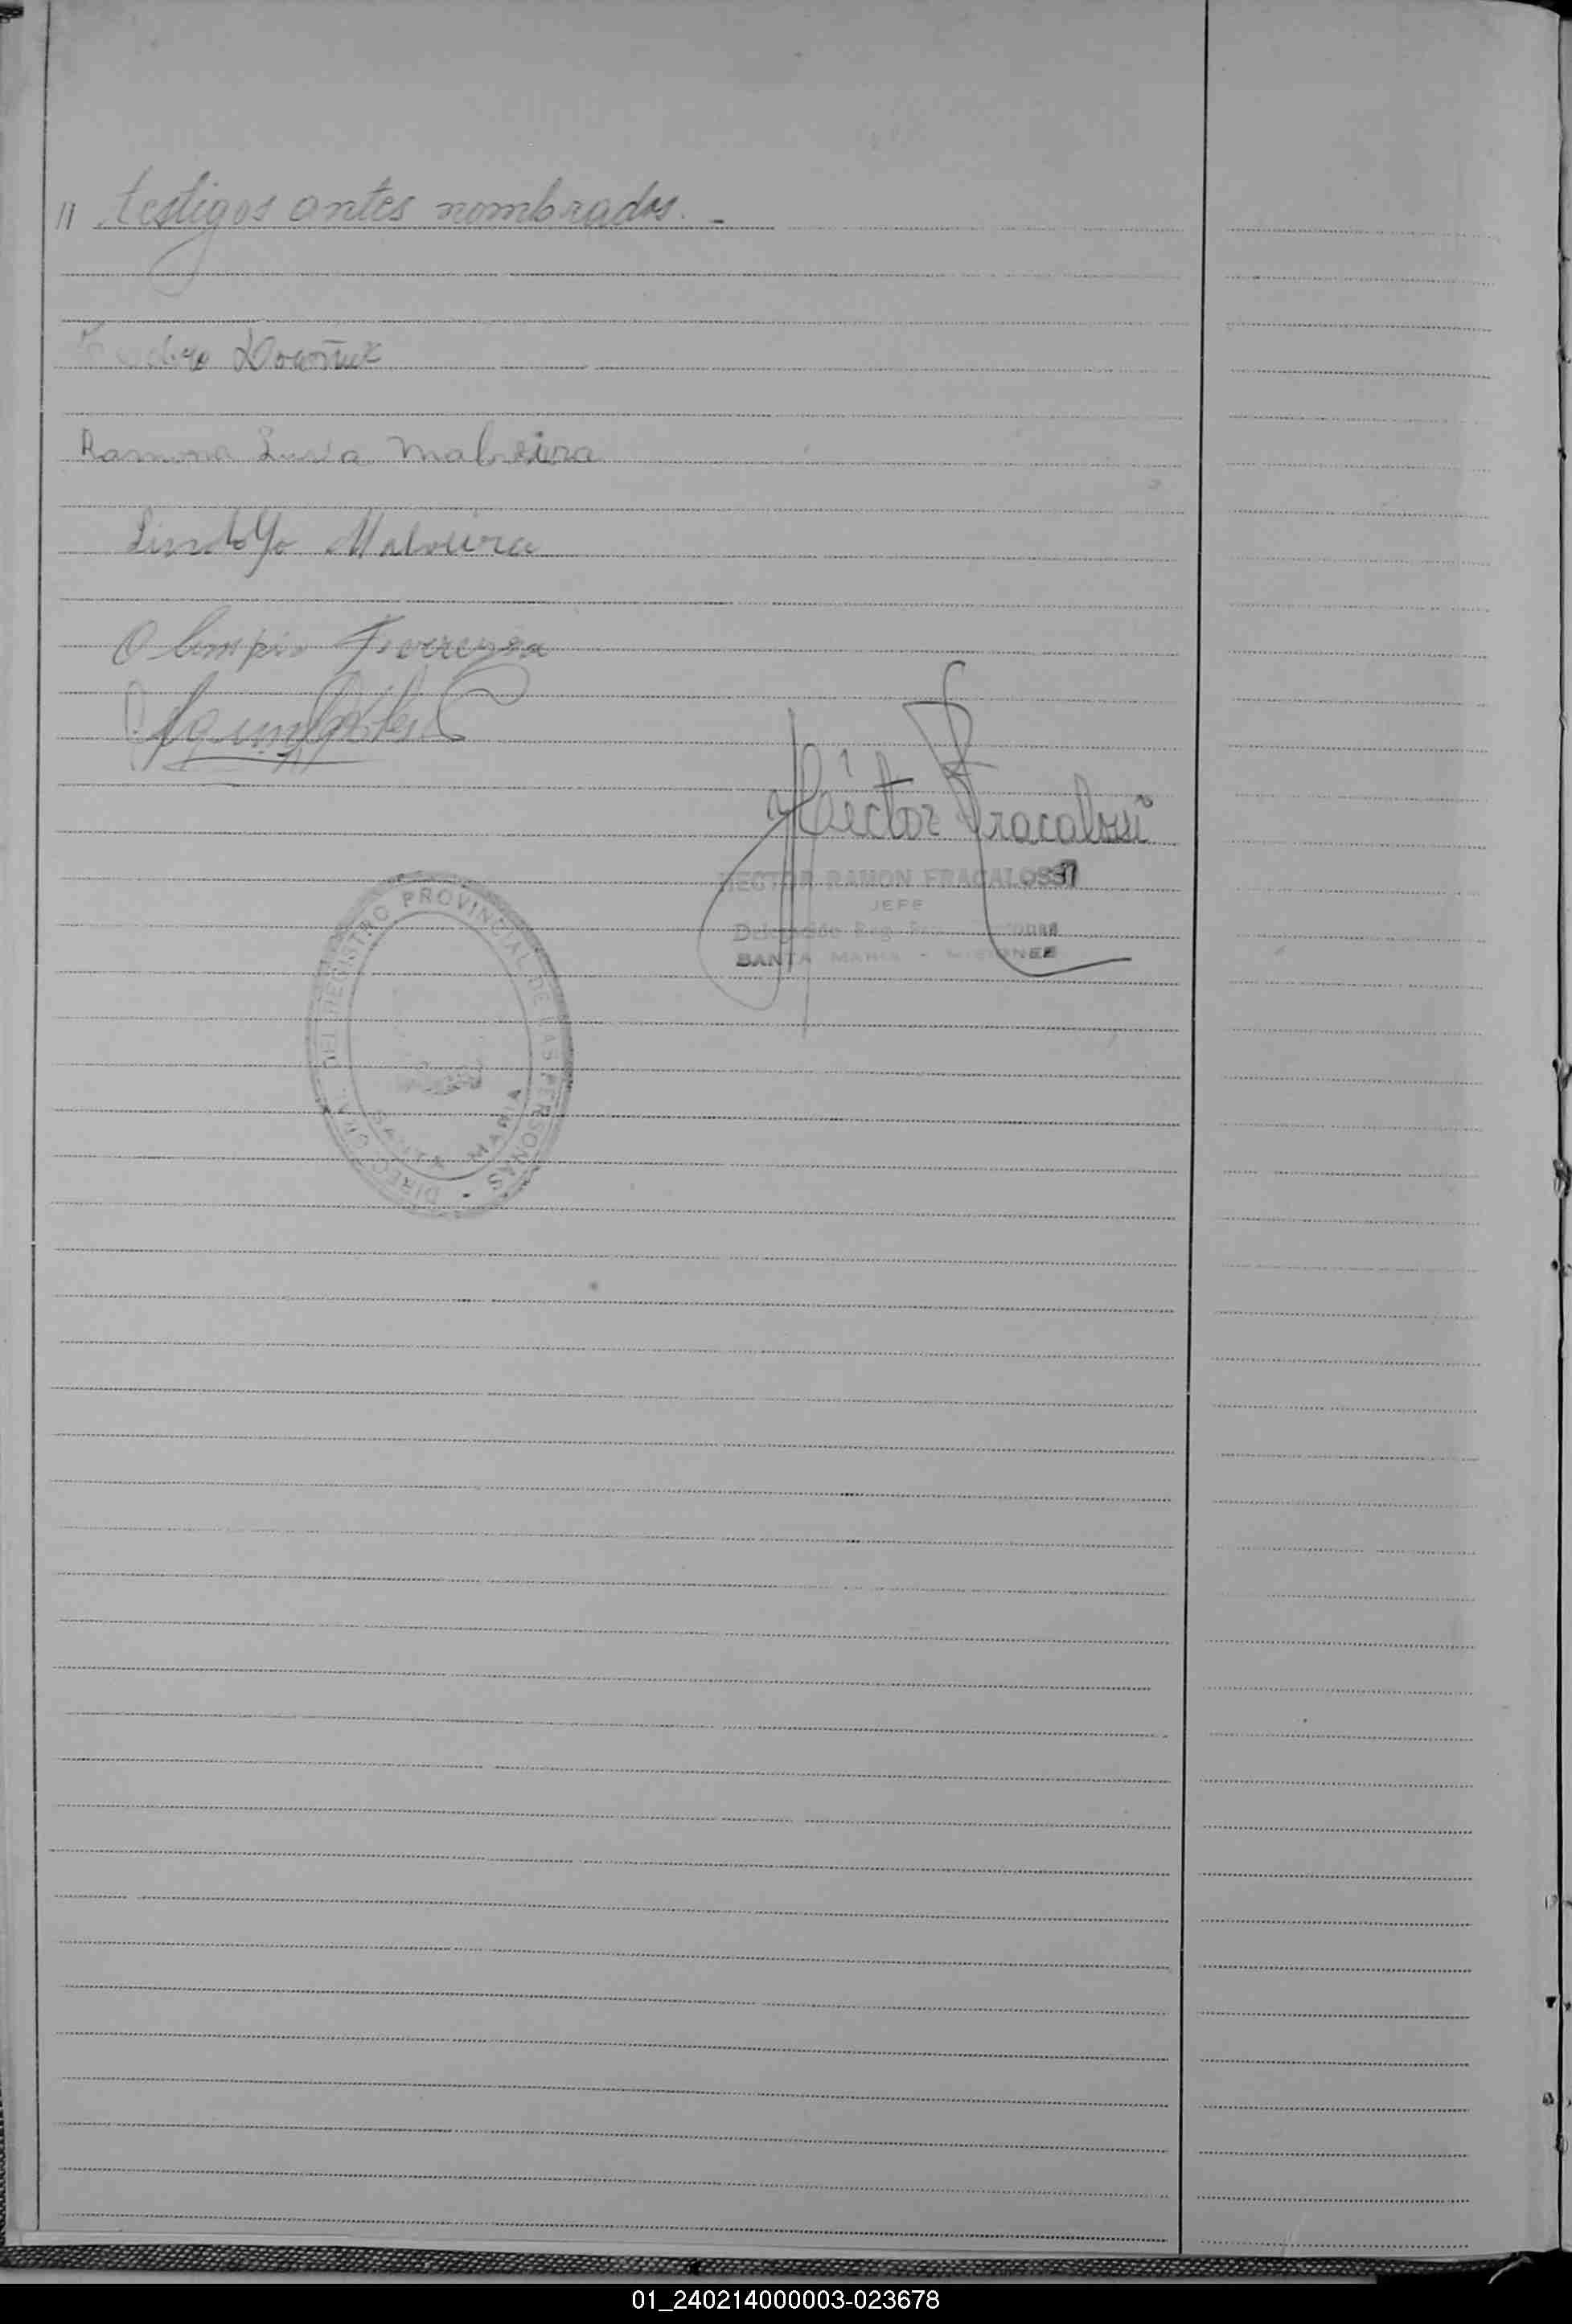 // testigos antes nombrados. -
Ramona Lucia Malveira
Lindolfo Malveira
Olimpio
Héctor Fracalossi
HECTOR RAMON FRACALOSSI
JEFE
SANTA MARIA - MISIONES
DIRECC. GRAL. DEL REGISTRO PROVINCIAL DE LAS PERSONAS
SANTA MARIA
01_240214000003-023678